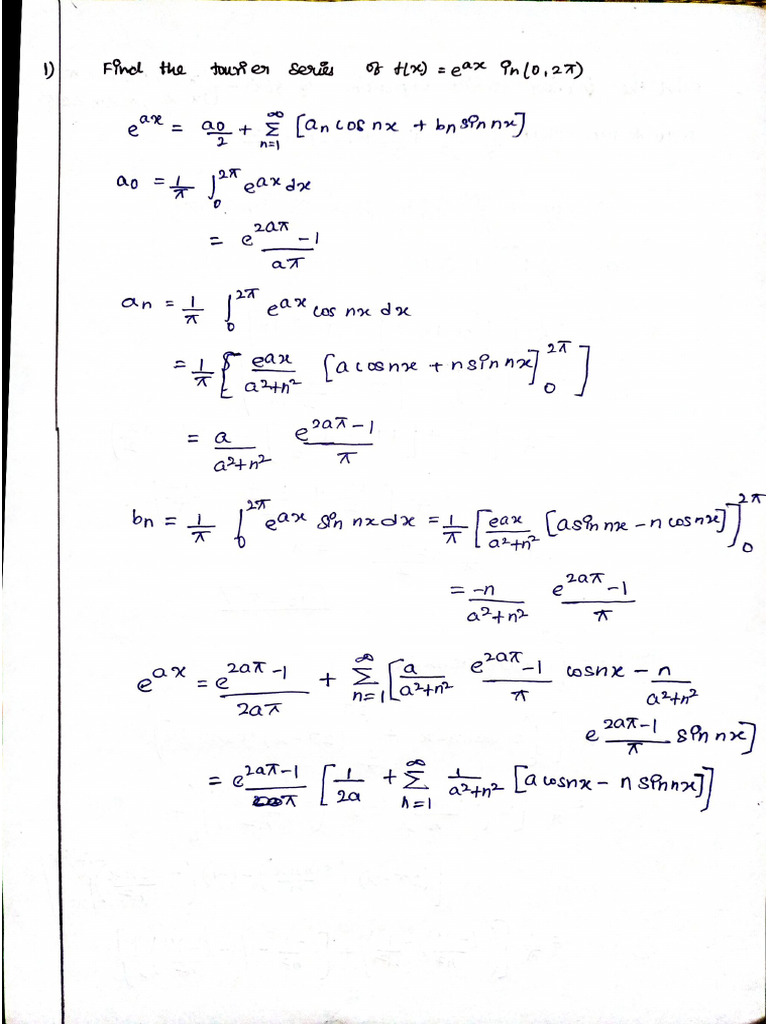 1) Find the fourier series of f(x) = e^{ax} in (0, 2π)
e^{ax} = a0/2 + ∑_{n=1}^{∞} [an cos nx + bn sin nx]
a0 = 1/π ∫_0^{2π} e^{ax} dx
= (e^{2aπ} - 1)/(aπ)
an = 1/π ∫_0^{2π} e^{ax} cos nx dx
= 1/π [ e^{ax}/(a²+n²) [a cos nx + n sin nx]_0^{2π} ]
= a/(a²+n²) (e^{2aπ} - 1)/π
bn = 1/π ∫_0^{2π} e^{ax} sin nx dx = 1/π [ e^{ax}/(a²+n²) [a sin nx - n cos nx] ]_0^{2π}
= -n/(a²+n²) (e^{2aπ} - 1)/π
e^{ax} = (e^{2aπ} - 1)/(2aπ) + ∑_{n=1}^{∞} [ a/(a²+n²) (e^{2aπ} - 1)/π cos nx - n/(a²+n²)
(e^{2aπ} - 1)/π sin nx]
= (e^{2aπ} - 1)/π [ 1/(2a) + ∑_{n=1}^{∞} 1/(a²+n²) [a cos nx - n sin nx] ]